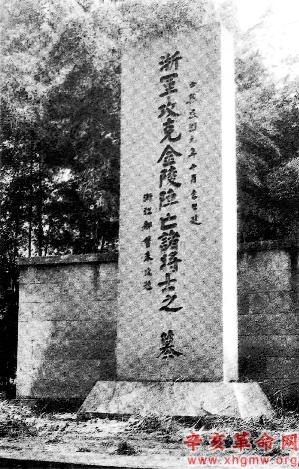 中華民國元年十月吉日建
浙軍攻克金陵陣亡諸將士之墓
浙江都督朱瑞
辛亥革命网
www.xhgmw.org